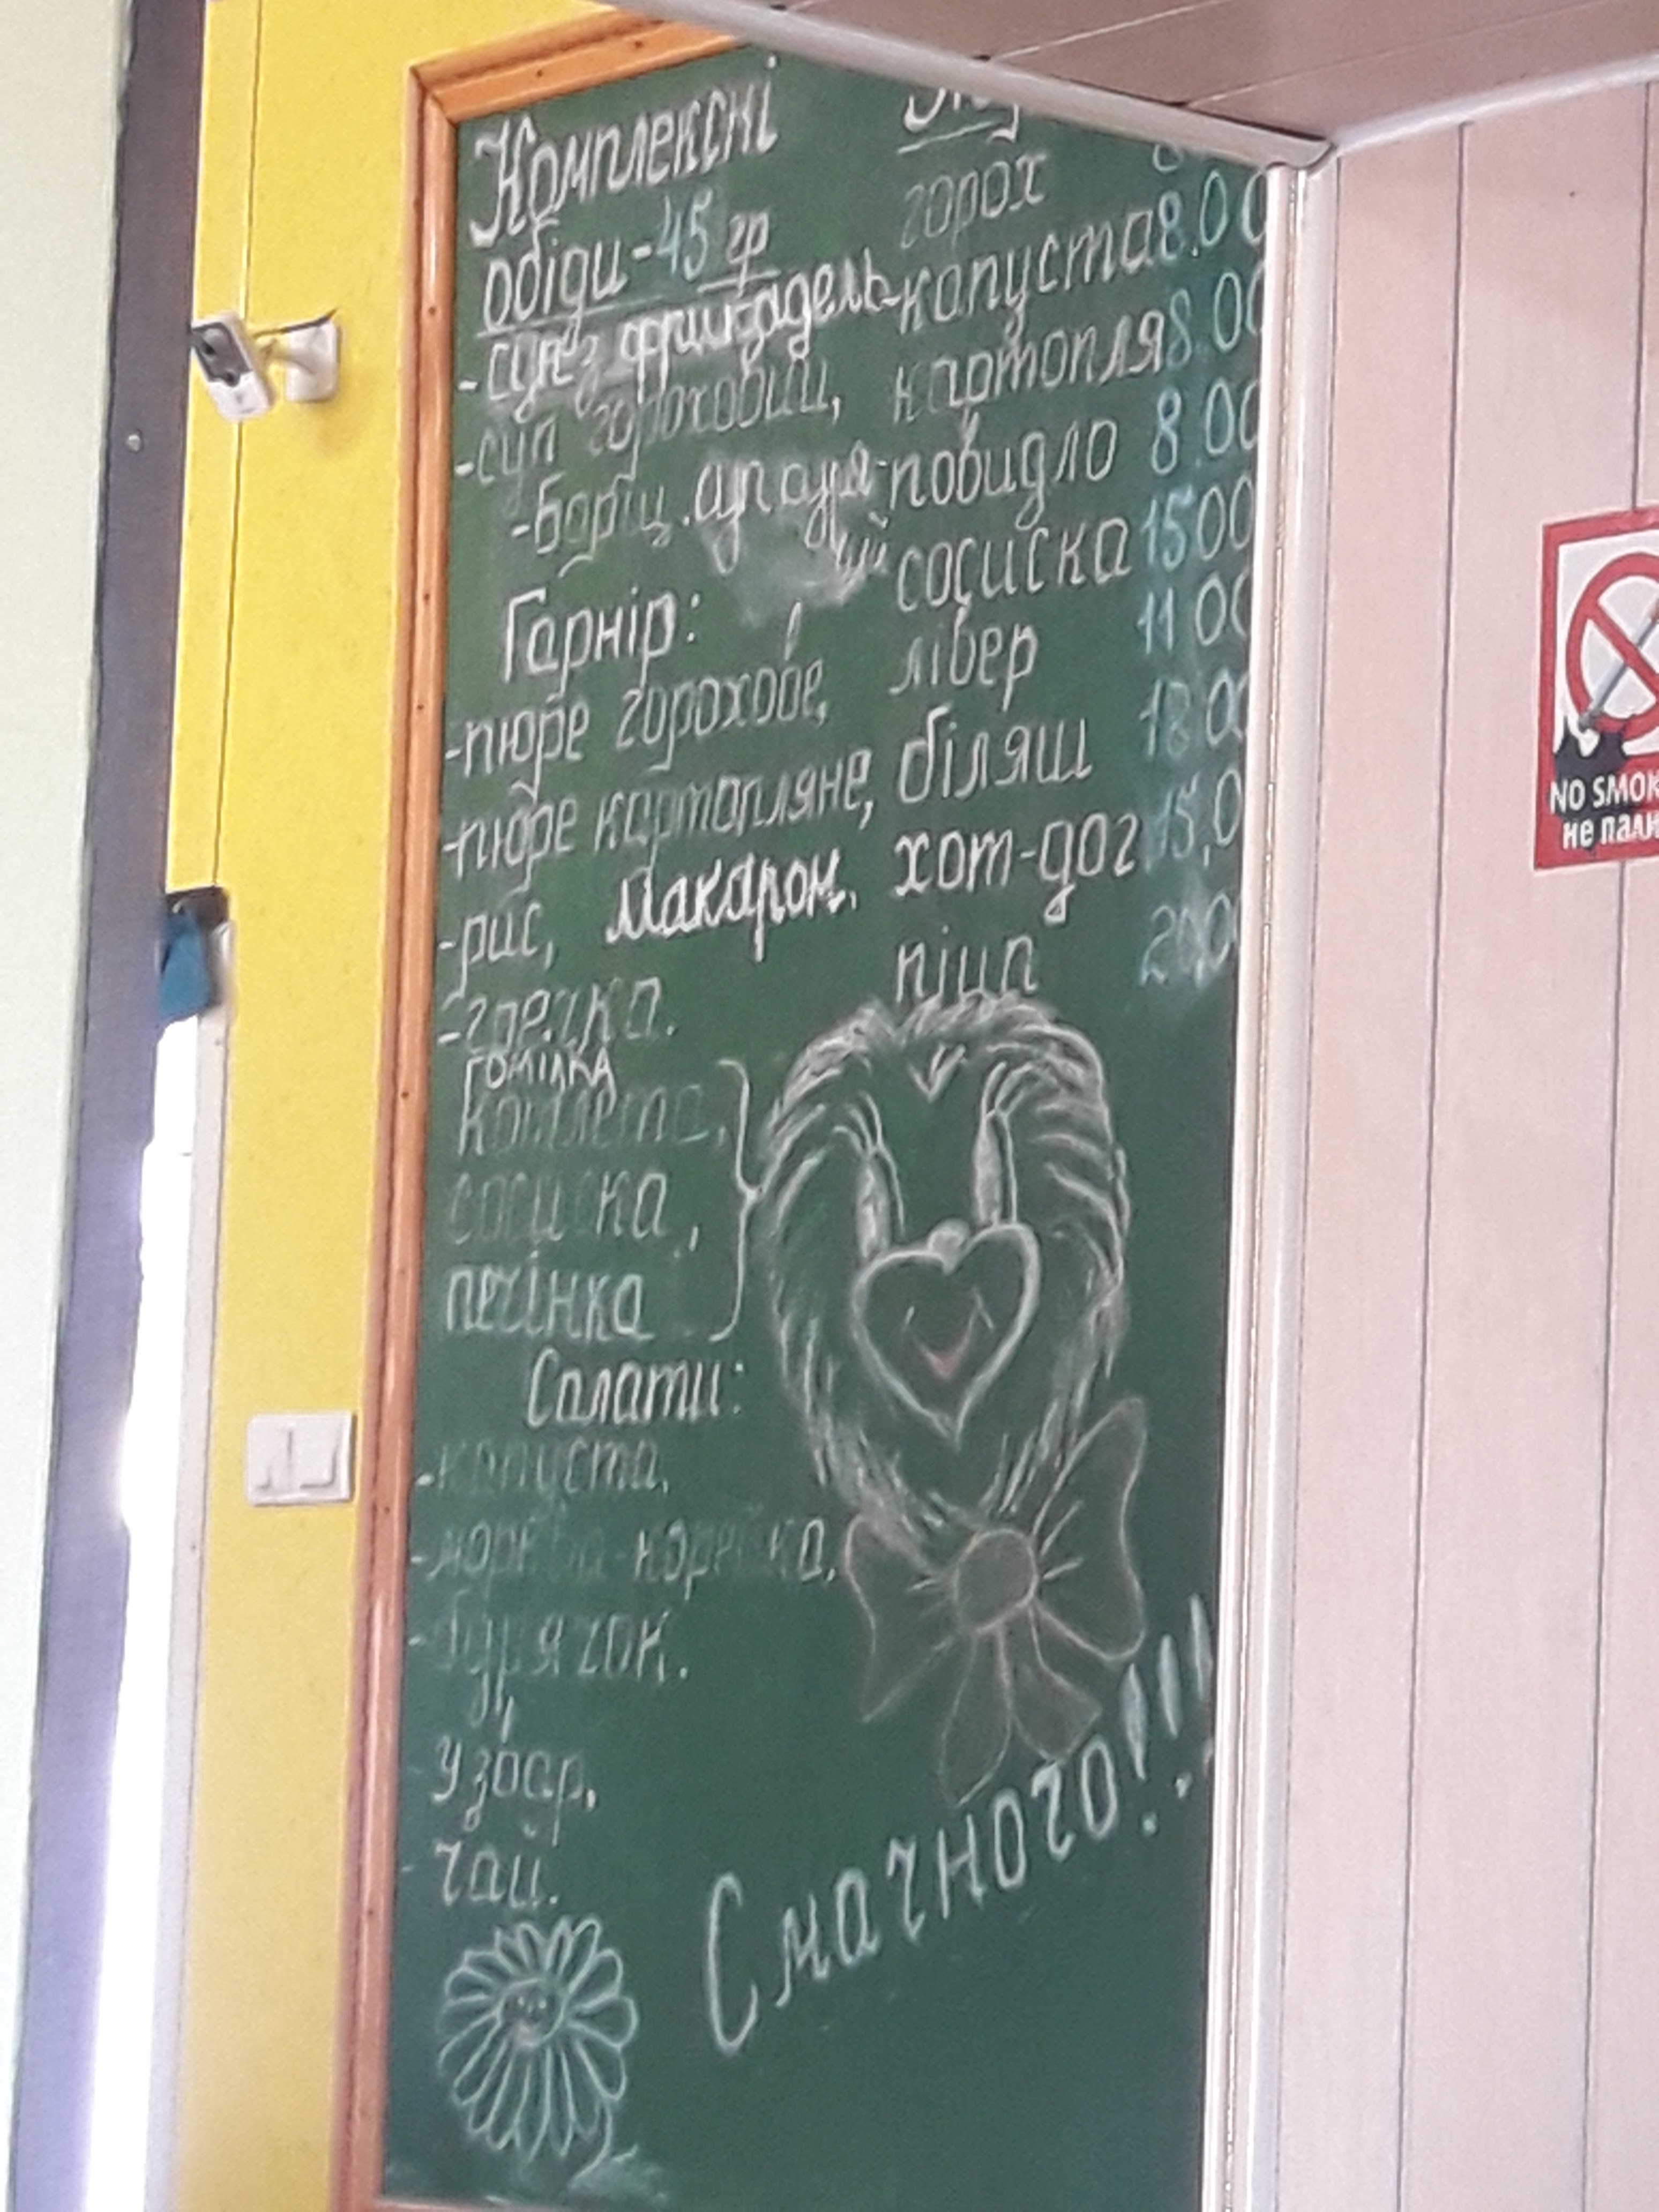 Комплексні
обіди-45 гр
-суп з фрикадель-
-суп гороховий,
-борщ.
Гарнір:
-пюре горохове,
-пюре картопляне,
-рис, макарон.
-гречка.
гомілка
котлета,
сосиска,
печінка
Салати:
-капуста,
-морква-корейка,
-бурячок.
Узвар,
-чай.
горох
капуста 8.00
картопля 8.00
повидло 8.00
сосиска 15 00
лівер 11 00
біляш 18.00
хот-дог 15,0
піца 20,0
Смачного!!!
NO SMOK
не пали